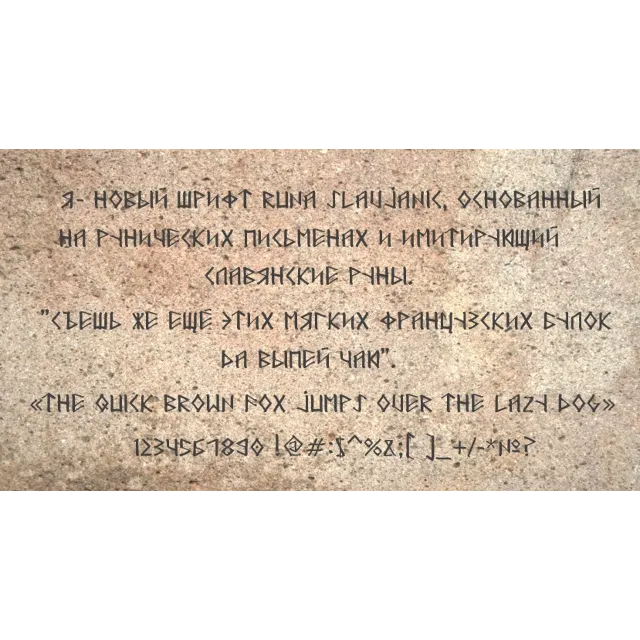 Я- НОВЫЙ ШРИФТ RUNA SLAVJANIC, ОСНОВАННЫЙ
НА РУНИЧЕСКИХ ПИСЬМЕНАХ И ИМИТИРУЮЩИЙ
СЛАВЯНСКИЕ РУНЫ.
"СЪЕШЬ ЖЕ ЕЩЕ ЭТИХ МЯГКИХ ФРАНЦУЗСКИХ БУЛОК
ДА ВЫПЕЙ ЧАЮ".
«THE QUICK BROWN FOX JUMPS OVER THE LAZY DOG»
1234567890 !@#:$^%&;[ ]_+/-*№?